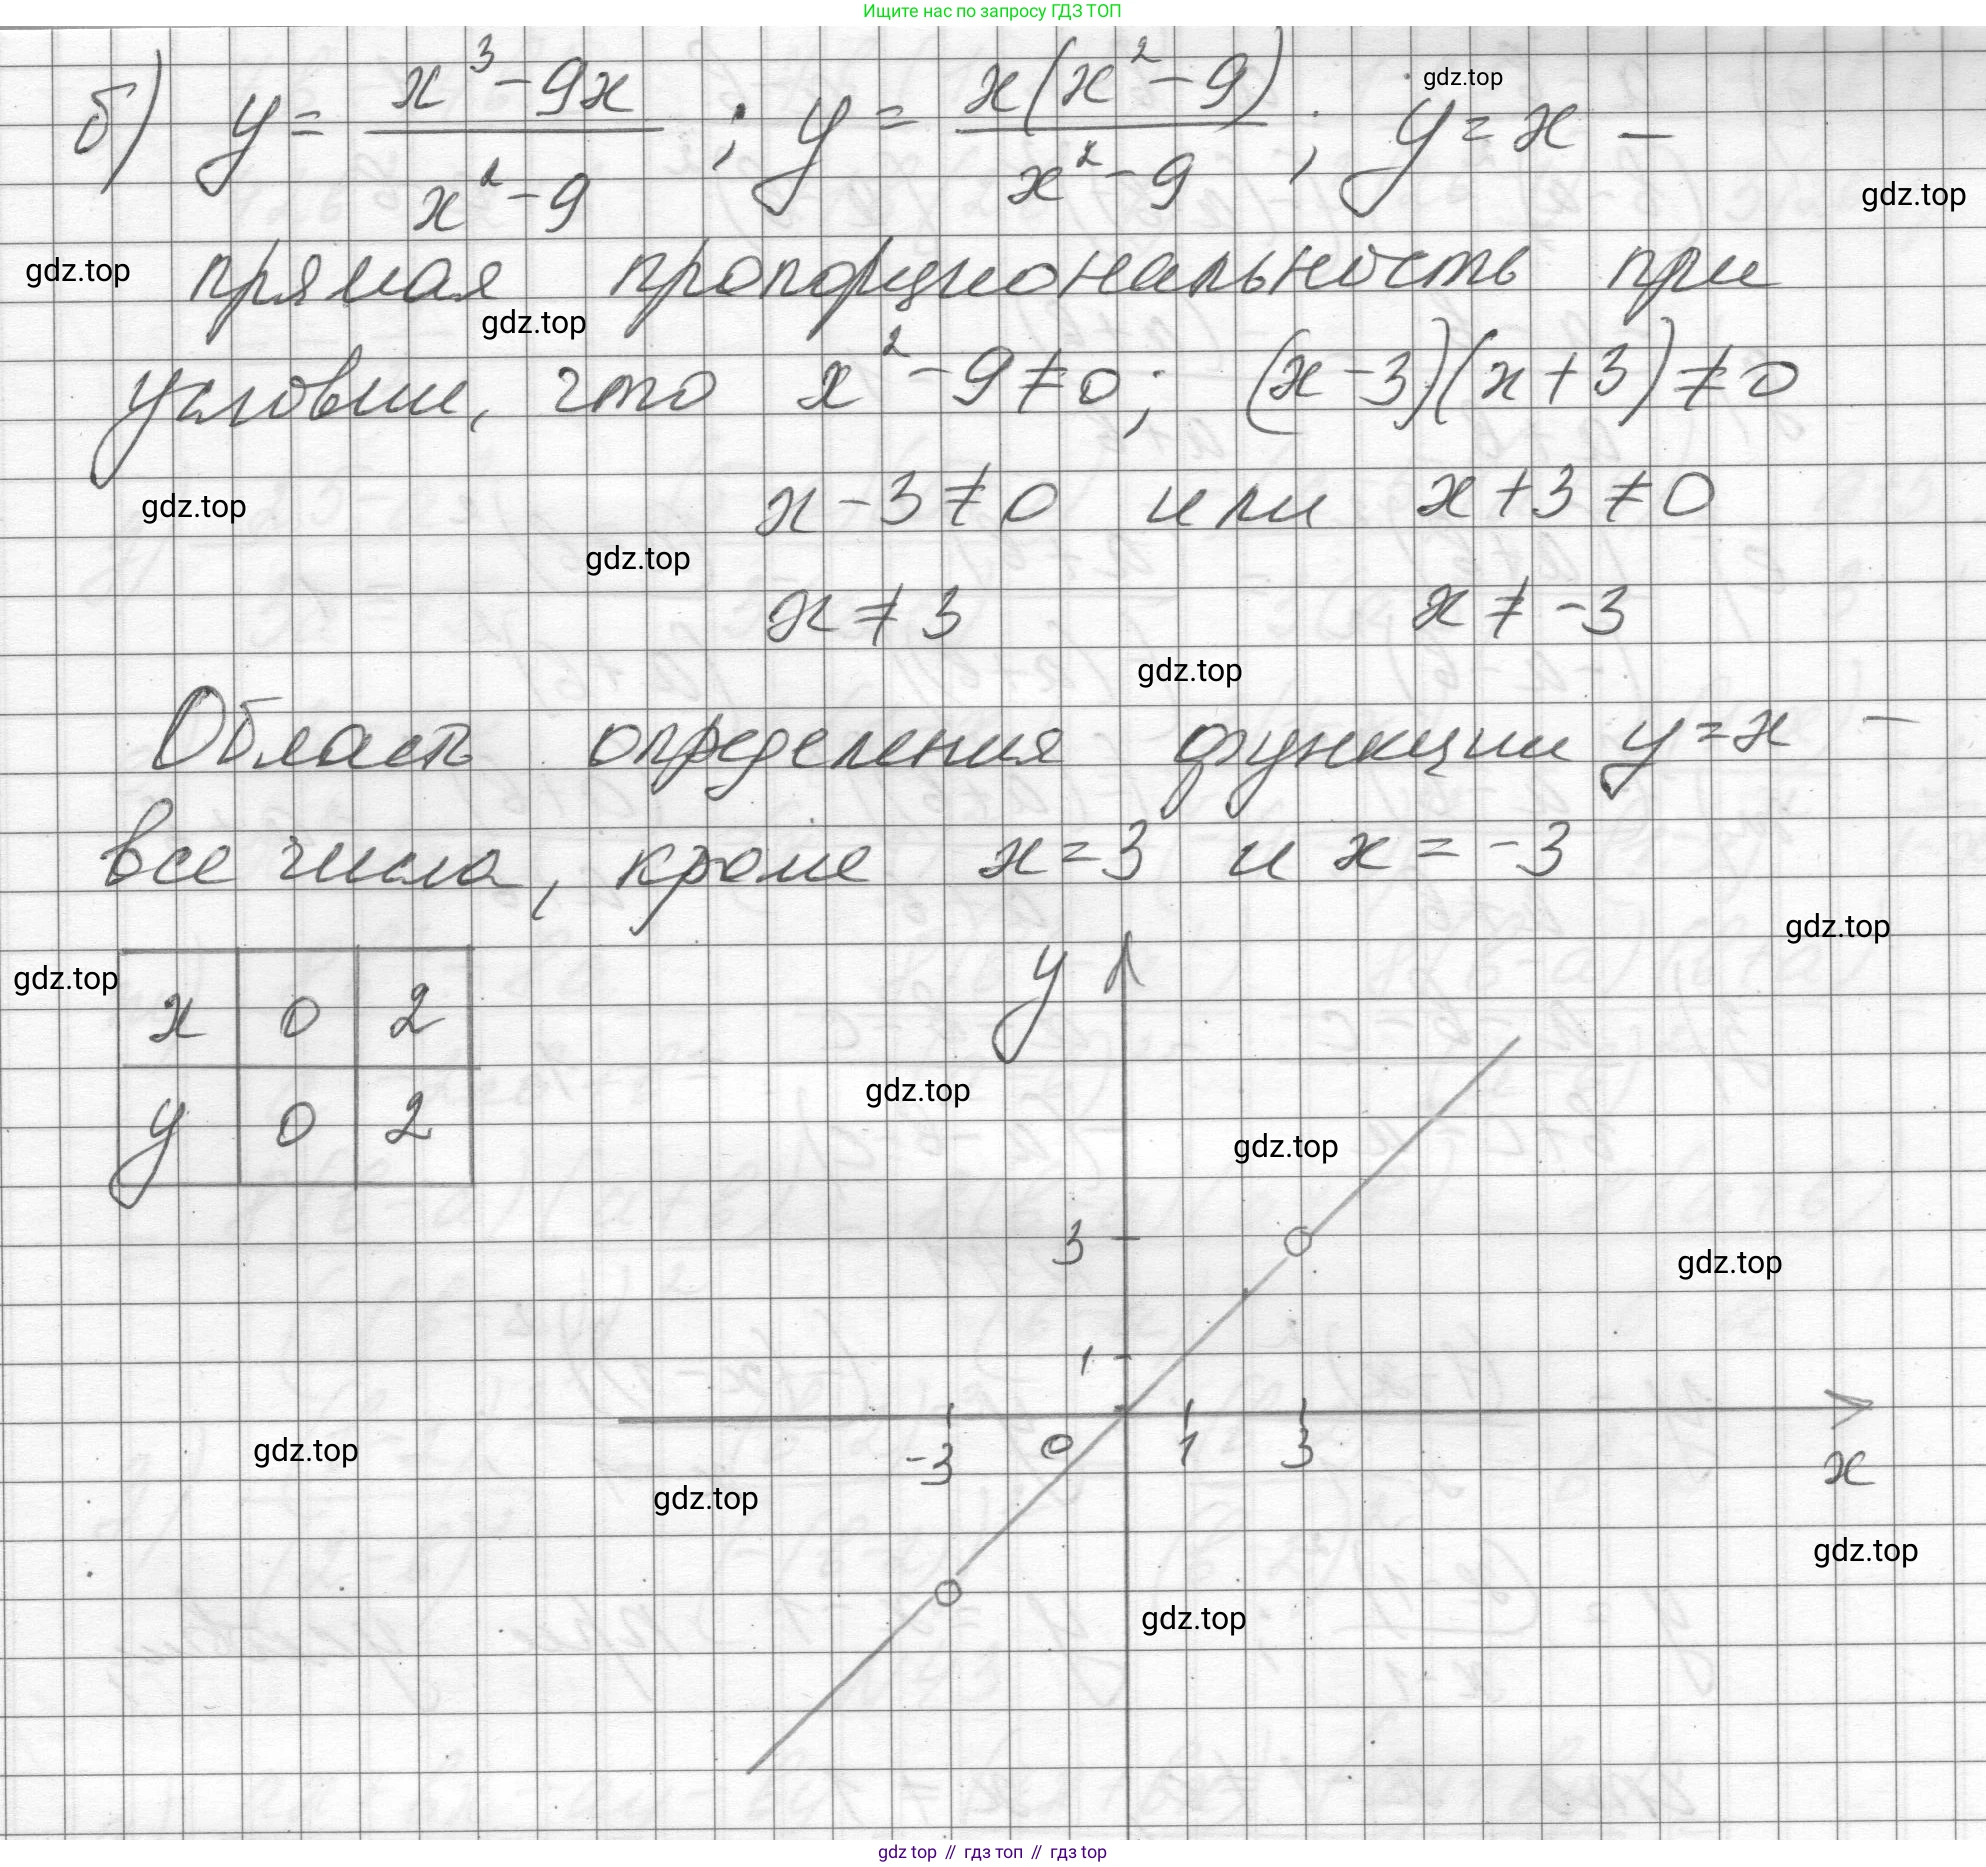 Ищите нас по запросу ГДЗ ТОП
б) y = (x³ - 9x)/(x² - 9) ; y = x(x² - 9)/(x² - 9) ; y = x —
gdz.top
gdz.top
прямая пропорциональность при
gdz.top
gdz.top
условии, что x² - 9 ≠ 0; (x - 3)(x + 3) ≠ 0
x - 3 ≠ 0 или x + 3 ≠ 0
gdz.top
gdz.top
x ≠ 3 x ≠ -3
gdz.top
Область определения функции y = x —
все числа, кроме x = 3 и x = -3
gdz.top
gdz.top
x 0 2
y 0 2
y
gdz.top
gdz.top
3
gdz.top
1
-3 0 1 3
x
gdz.top
gdz.top
gdz.top
gdz.top
gdz top // гдз топ // gdz top